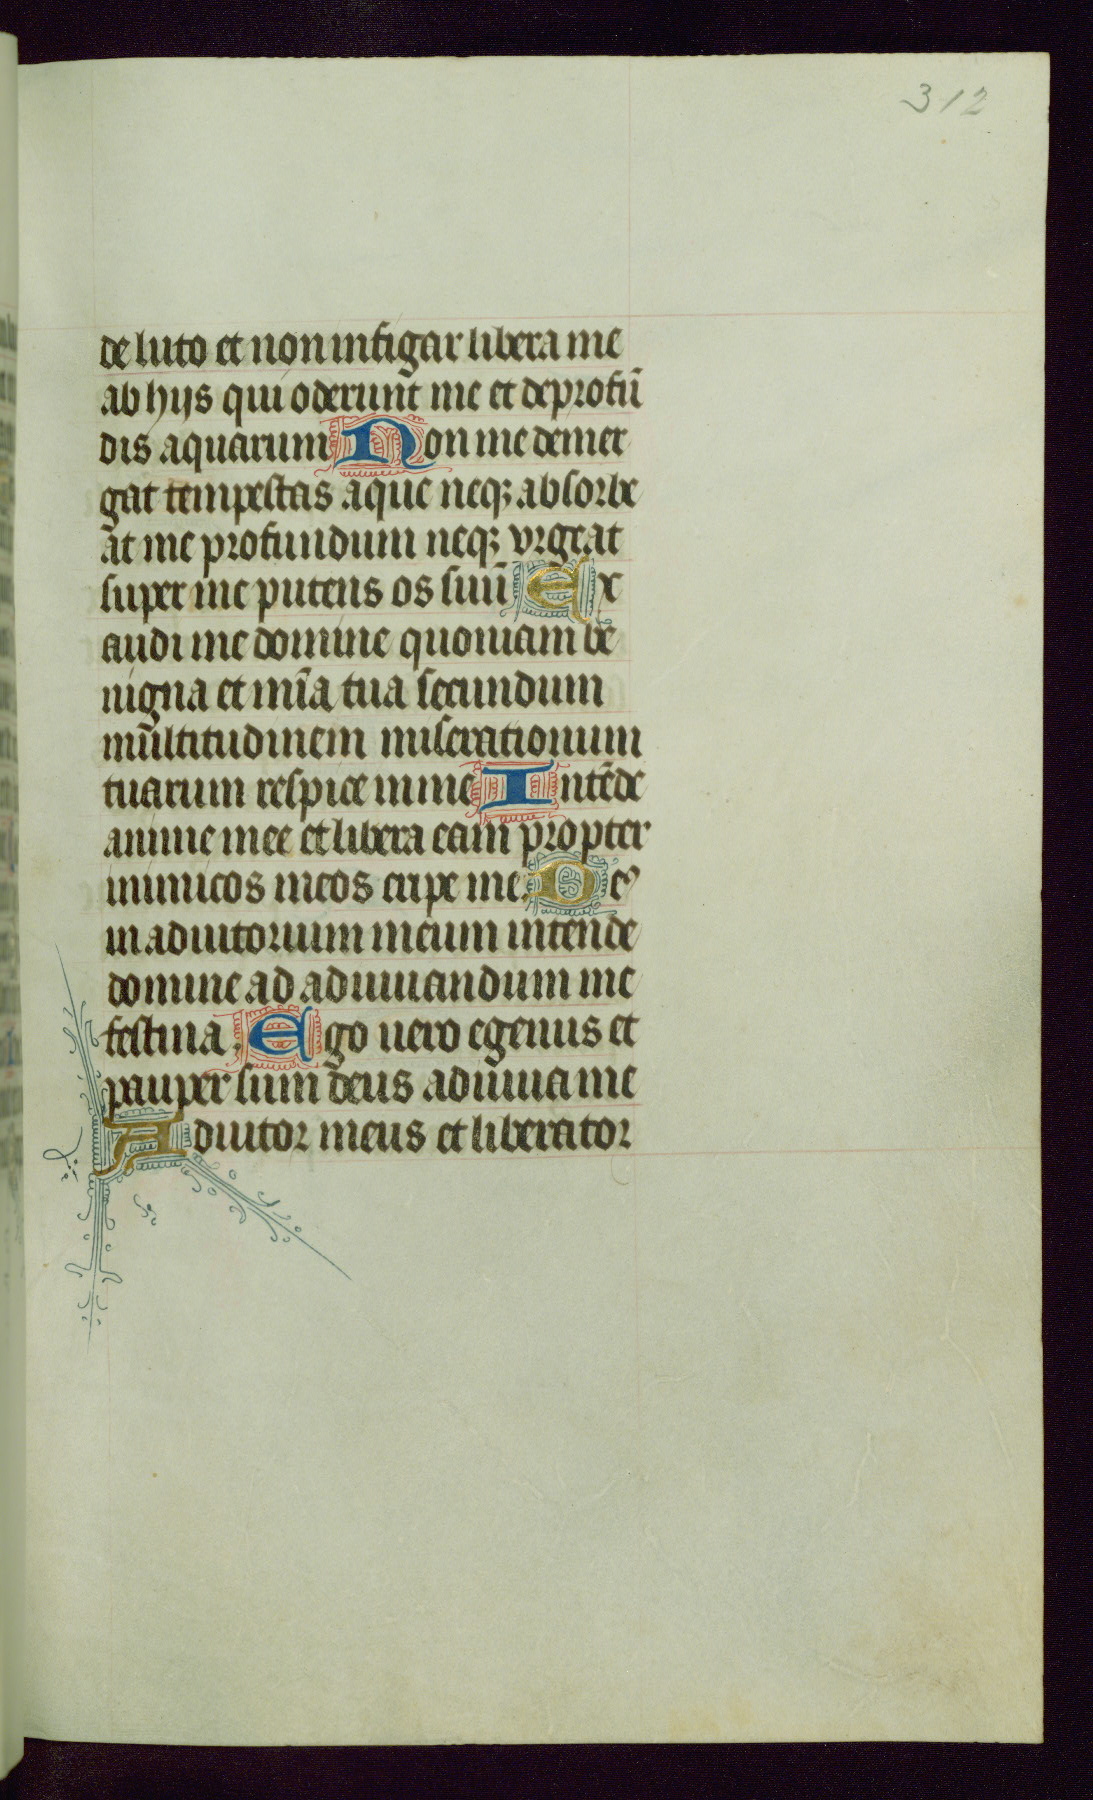 312
de luto et non infigar libera me
ab hijs qui oderunt me et de profū
dis aquarum Non me demer
gat tempestas aque neqꝫ absorbe
at me profundum neqꝫ vrgeat
super me puteus os suū Ex
audi me domine quoniam be
nigna et mīa tua secundum
multitudinem miserationum
tuarum respice in me Intēde
anime mee et libera eam propter
inimicos meos eripe me Deꝰ
in adiutorium meum intende
domine ad adiuuandum me
festina Ego uero egenus et
pauper sum deus adiuua me
Adiutor meus et liberator